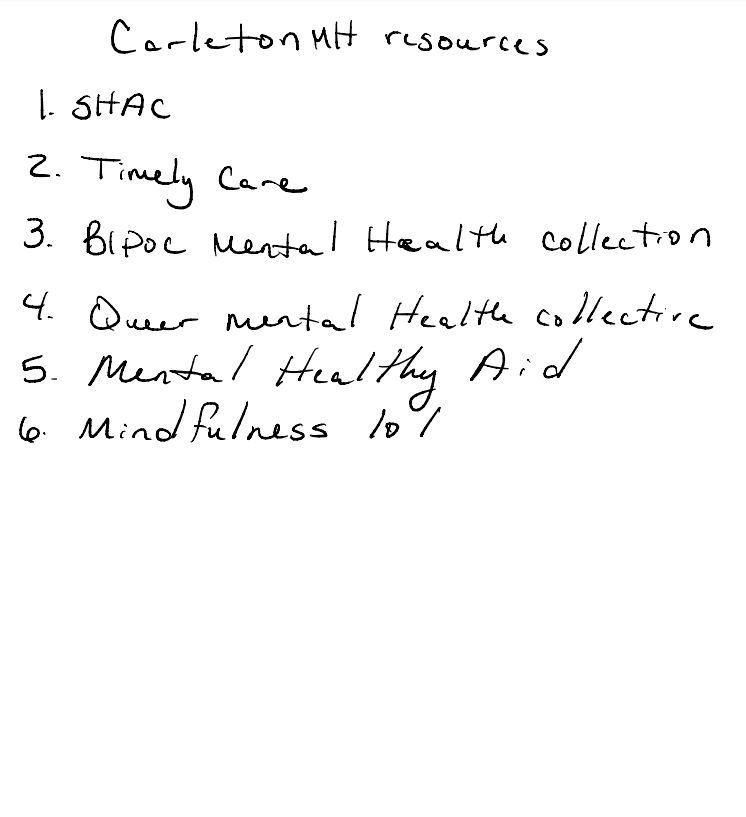 Carleton MH resources
1. SHAC
2. Timely Care
3. BIPOC Mental Health collection
4. Queer mental Health collective
5. Mental Healthy Aid
6. Mindfulness 101